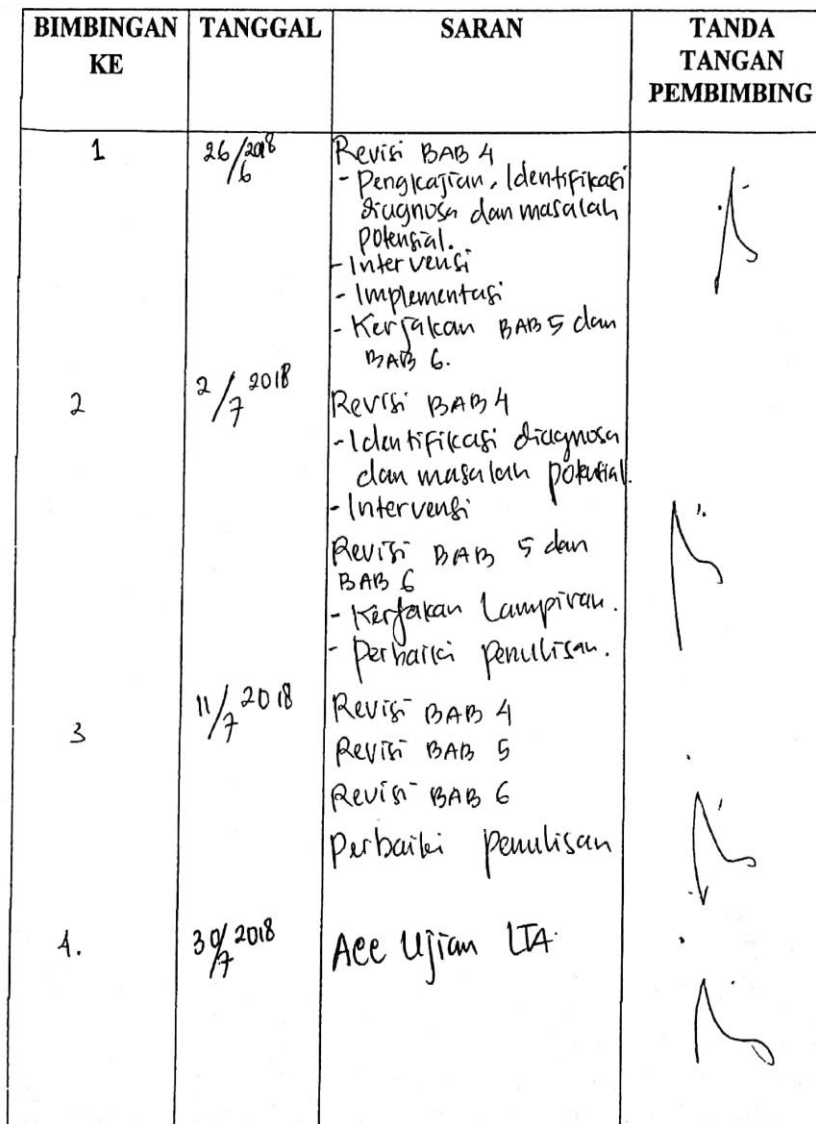 BIMBINGAN KE
TANGGAL
SARAN
TANDA TANGAN PEMBIMBING
1
26/6 2018
Revisi BAB 4
- Pengkajian, Identifikasi
diagnosa dan masalah
potensial.
- Intervensi
- Implementasi
- Kerjakan BAB 5 dan
BAB 6.
2
2/7 2018
Revisi BAB 4
- Identifikasi diagnosa
dan masalah potensial.
- Intervensi
Revisi BAB 5 dan
BAB 6
- Kerjakan Lampiran.
- Perbaiki penulisan.
3
11/7 2018
Revisi BAB 4
Revisi BAB 5
Revisi BAB 6
Perbaiki penulisan
4.
30/7 2018
Acc Ujian LTA